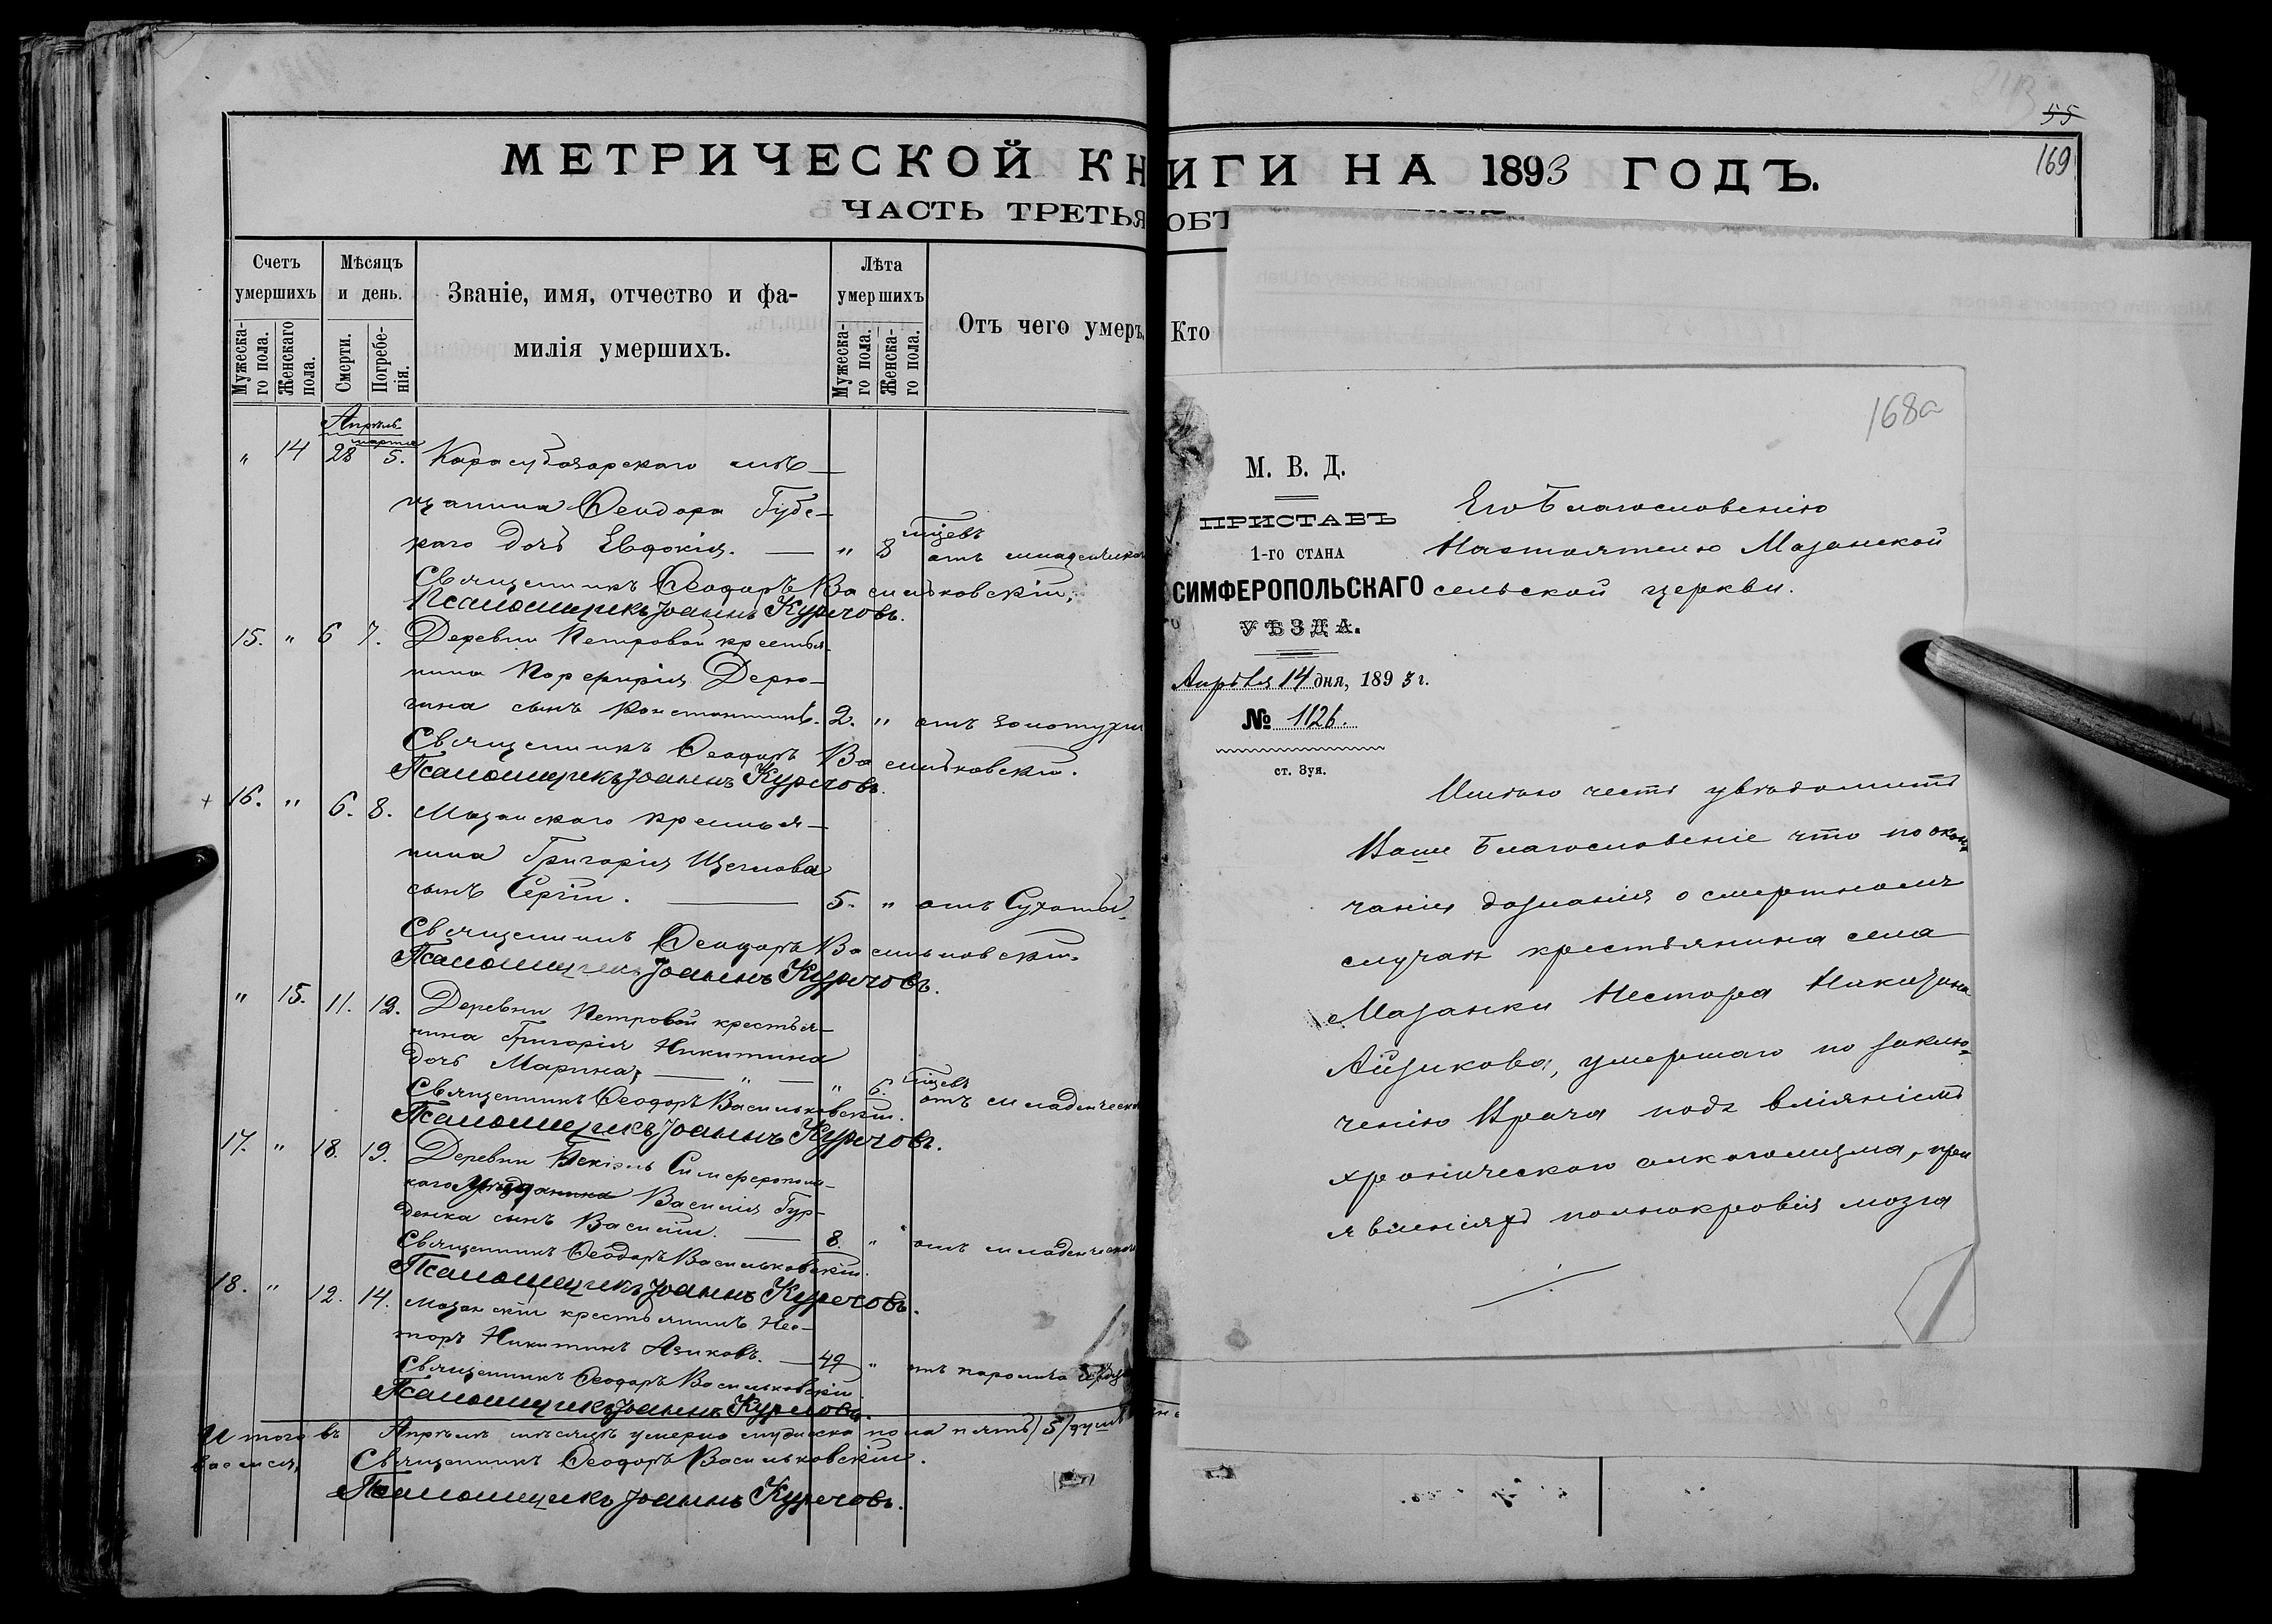 МЕТРИЧЕСКОЙ КНИГИ НА 1893 ГОДЪ.
ЧАСТЬ ТРЕТЬЯ
ОБ
55
169
Счетъ умершихъ
Мужеска-го пола.
Женскаго пола.
Мѣсяцъ и день.
Смерти.
Погребе-нія.
Званіе, имя, отчество и фа-
милія умершихъ.
Лѣта умершихъ
Мужеска-го пола.
Женска-го пола.
Отъ чего умеръ.
Кто
Апрѣль
марта
" 14 28 5. Карасубазарскаго мѣ-
щанина Ѳеодора Губс-
каго дочь Евдокія. — " 8 мѣсяцевъ отъ младенческой
Священникъ Ѳеодоръ Васильковскій.
Псаломщикъ Іоаннъ Курчовъ.
15. " 6 7. Деревни Петровой крестья-
нина Порфирія Дерю-
гина сынъ Константинъ. 2. " отъ золотухи
Священникъ Ѳеодоръ Васильковскій.
Псаломщикъ Іоаннъ Курчовъ.
+ 16. " 6. 8. Мазанскаго крестья-
нина Григорія Щеглова
сынъ Сергій. — 5. " отъ Сухоты.
Священникъ Ѳеодоръ Васильковскій.
Псаломщикъ Іоаннъ Курчовъ.
" 15. 11. 12. Деревни Петровой крестья-
нина Григорія Никитина
дочь Марина, — " — " 6. отъ младенческой
Священникъ Ѳеодоръ Васильковскій.
Псаломщикъ Іоаннъ Курчовъ.
17. " 18. 19. Деревни Симферополь-
каго Василія Гур-
денка сынъ Василій. — 8. " отъ младенческой
Священникъ Ѳеодоръ Васильковскій.
Псаломщикъ Іоаннъ Курчовъ.
18. " 12. 14. Мазанскій крестьянинъ Нес-
торъ Никитинъ Азиковъ. — 49 " отъ паралича
Священникъ Ѳеодоръ Васильковскій
Псаломщикъ Іоаннъ Курчовъ.
Итого въ Апрѣлѣ мѣсяцѣ умерло мужеска пола пять /5/ душъ
Священникъ Ѳеодоръ Васильковскій.
Псаломщикъ Іоаннъ Курчовъ.
168а
М. В. Д.
ПРИСТАВЪ
1-го СТАНА
СИМФЕРОПОЛЬСКАГО
УѢЗДА.
Апрѣля 14 дня, 1893 г.
№ 1126.
ст. Зуя.
Его Благословенію
Настоятелю Мазанской
сельской церкви.
Имѣю честь увѣдомить
Ваше Благословеніе что по окон-
чаніи дознанія о смертномъ
случаѣ крестьянина села
Мазанки Нестора Никизина
Айзикова, умершаго по заклю-
ченію Врача подъ вліяніемъ
хроническаго алкоголизма, при
явленіяхъ полнокровія мозга